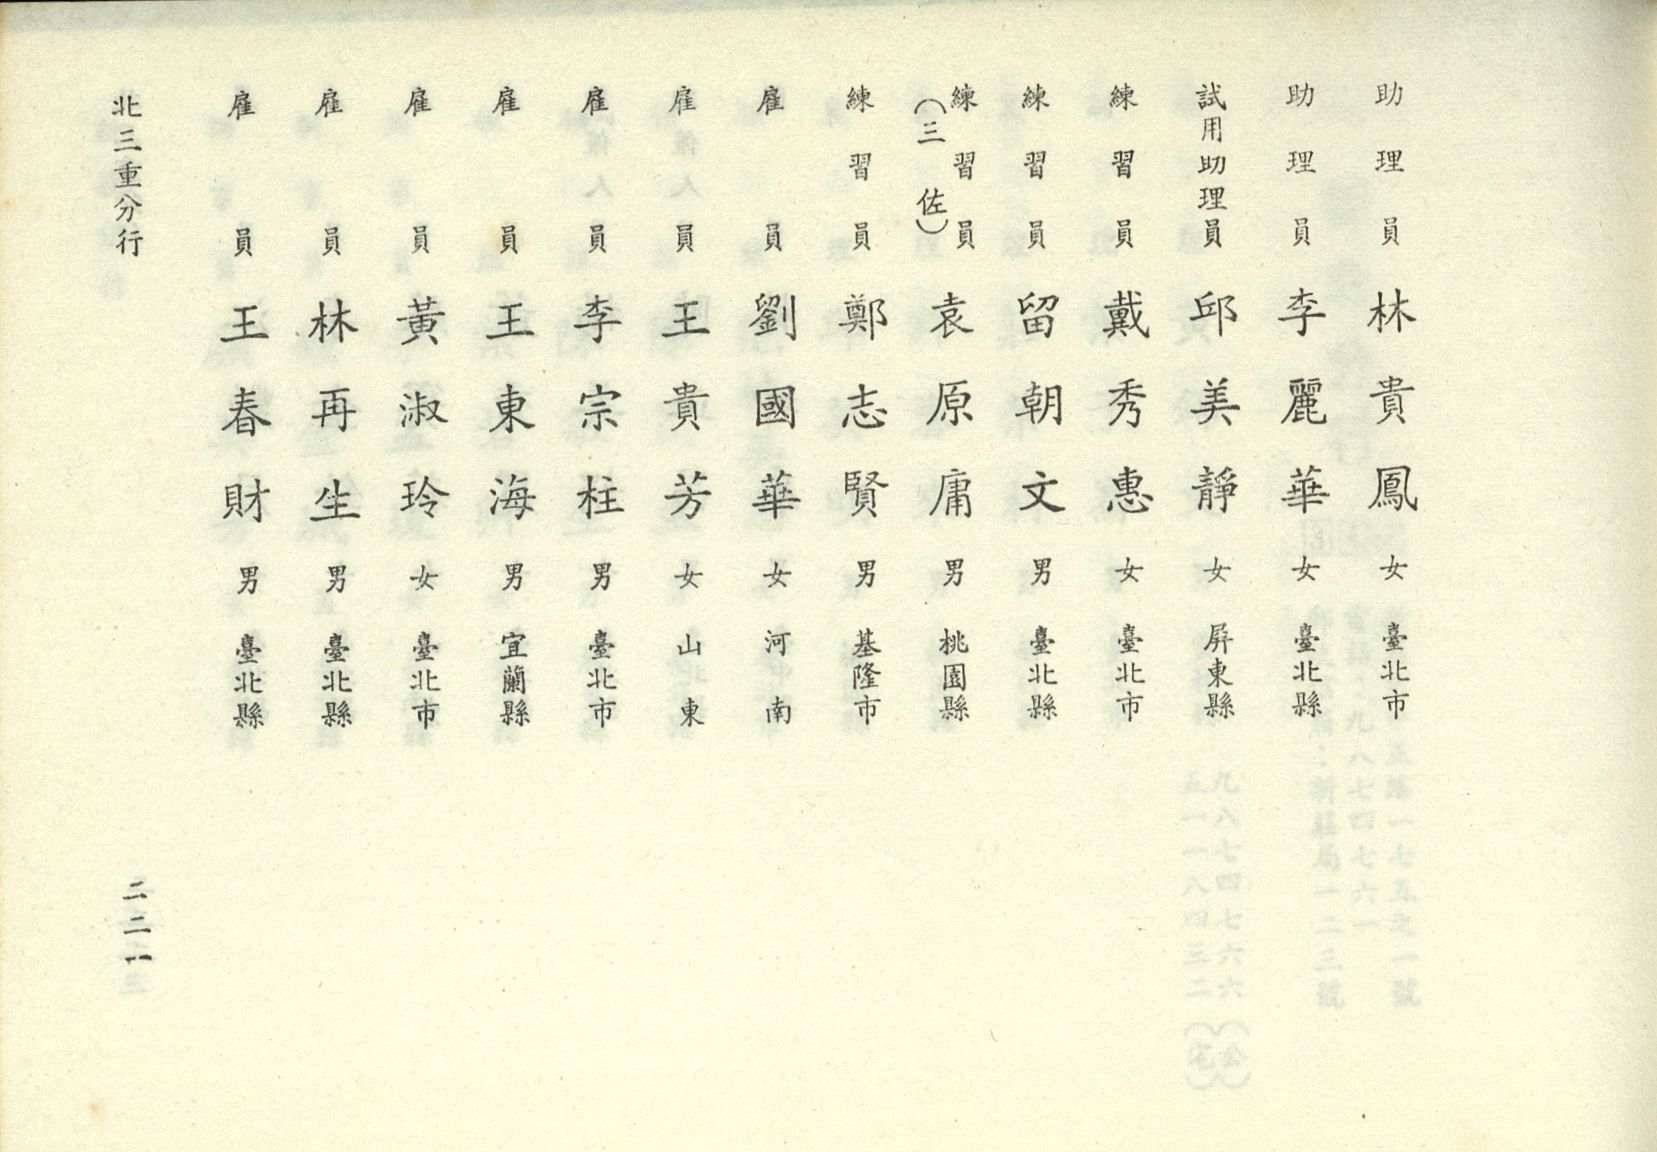 助理員 林貴鳳 女 臺北市
助理員 李麗華 女 臺北縣
試用助理員 邱美靜 女 屏東縣
練習員 戴秀惠 女 臺北市
練習員 留朝文 男 臺北縣
練習員（三佐） 袁原庸 男 桃園縣
練習員 鄭志賢 男 基隆市
雇員 劉國華 女 河南
雇員 王貴芳 女 山東
雇員 李宗柱 男 臺北市
雇員 王東海 男 宜蘭縣
雇員 黃淑玲 女 臺北市
雇員 林再生 男 臺北縣
雇員 王春財 男 臺北縣
北三重分行
二二一